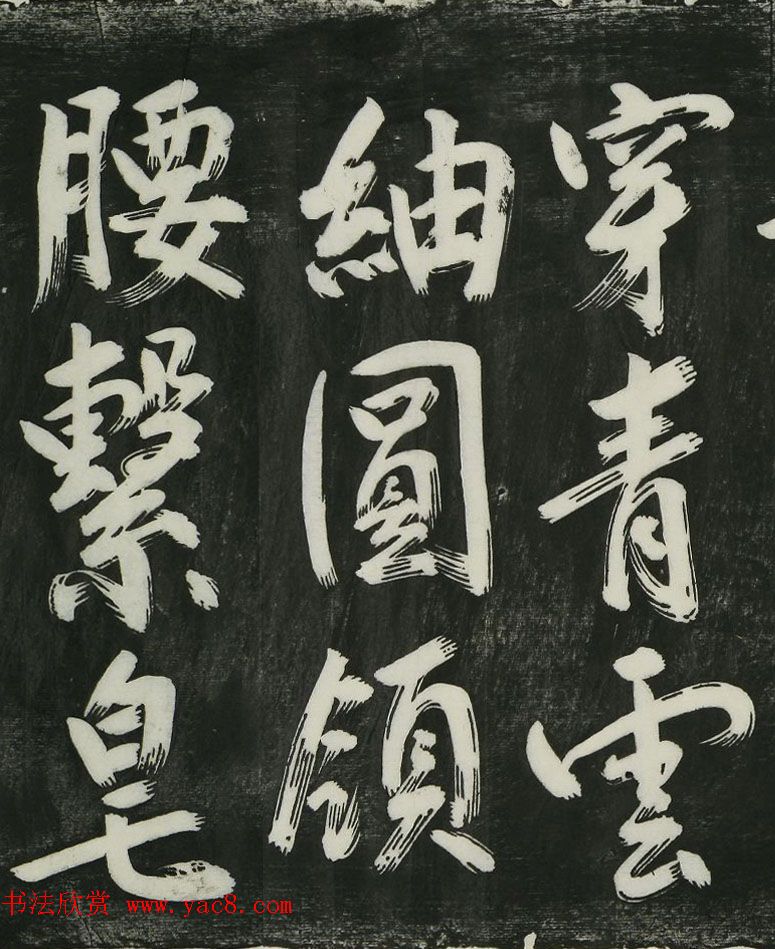 穿青雲
紬圓領
腰繫皂
书法欣赏 www.yac8.com